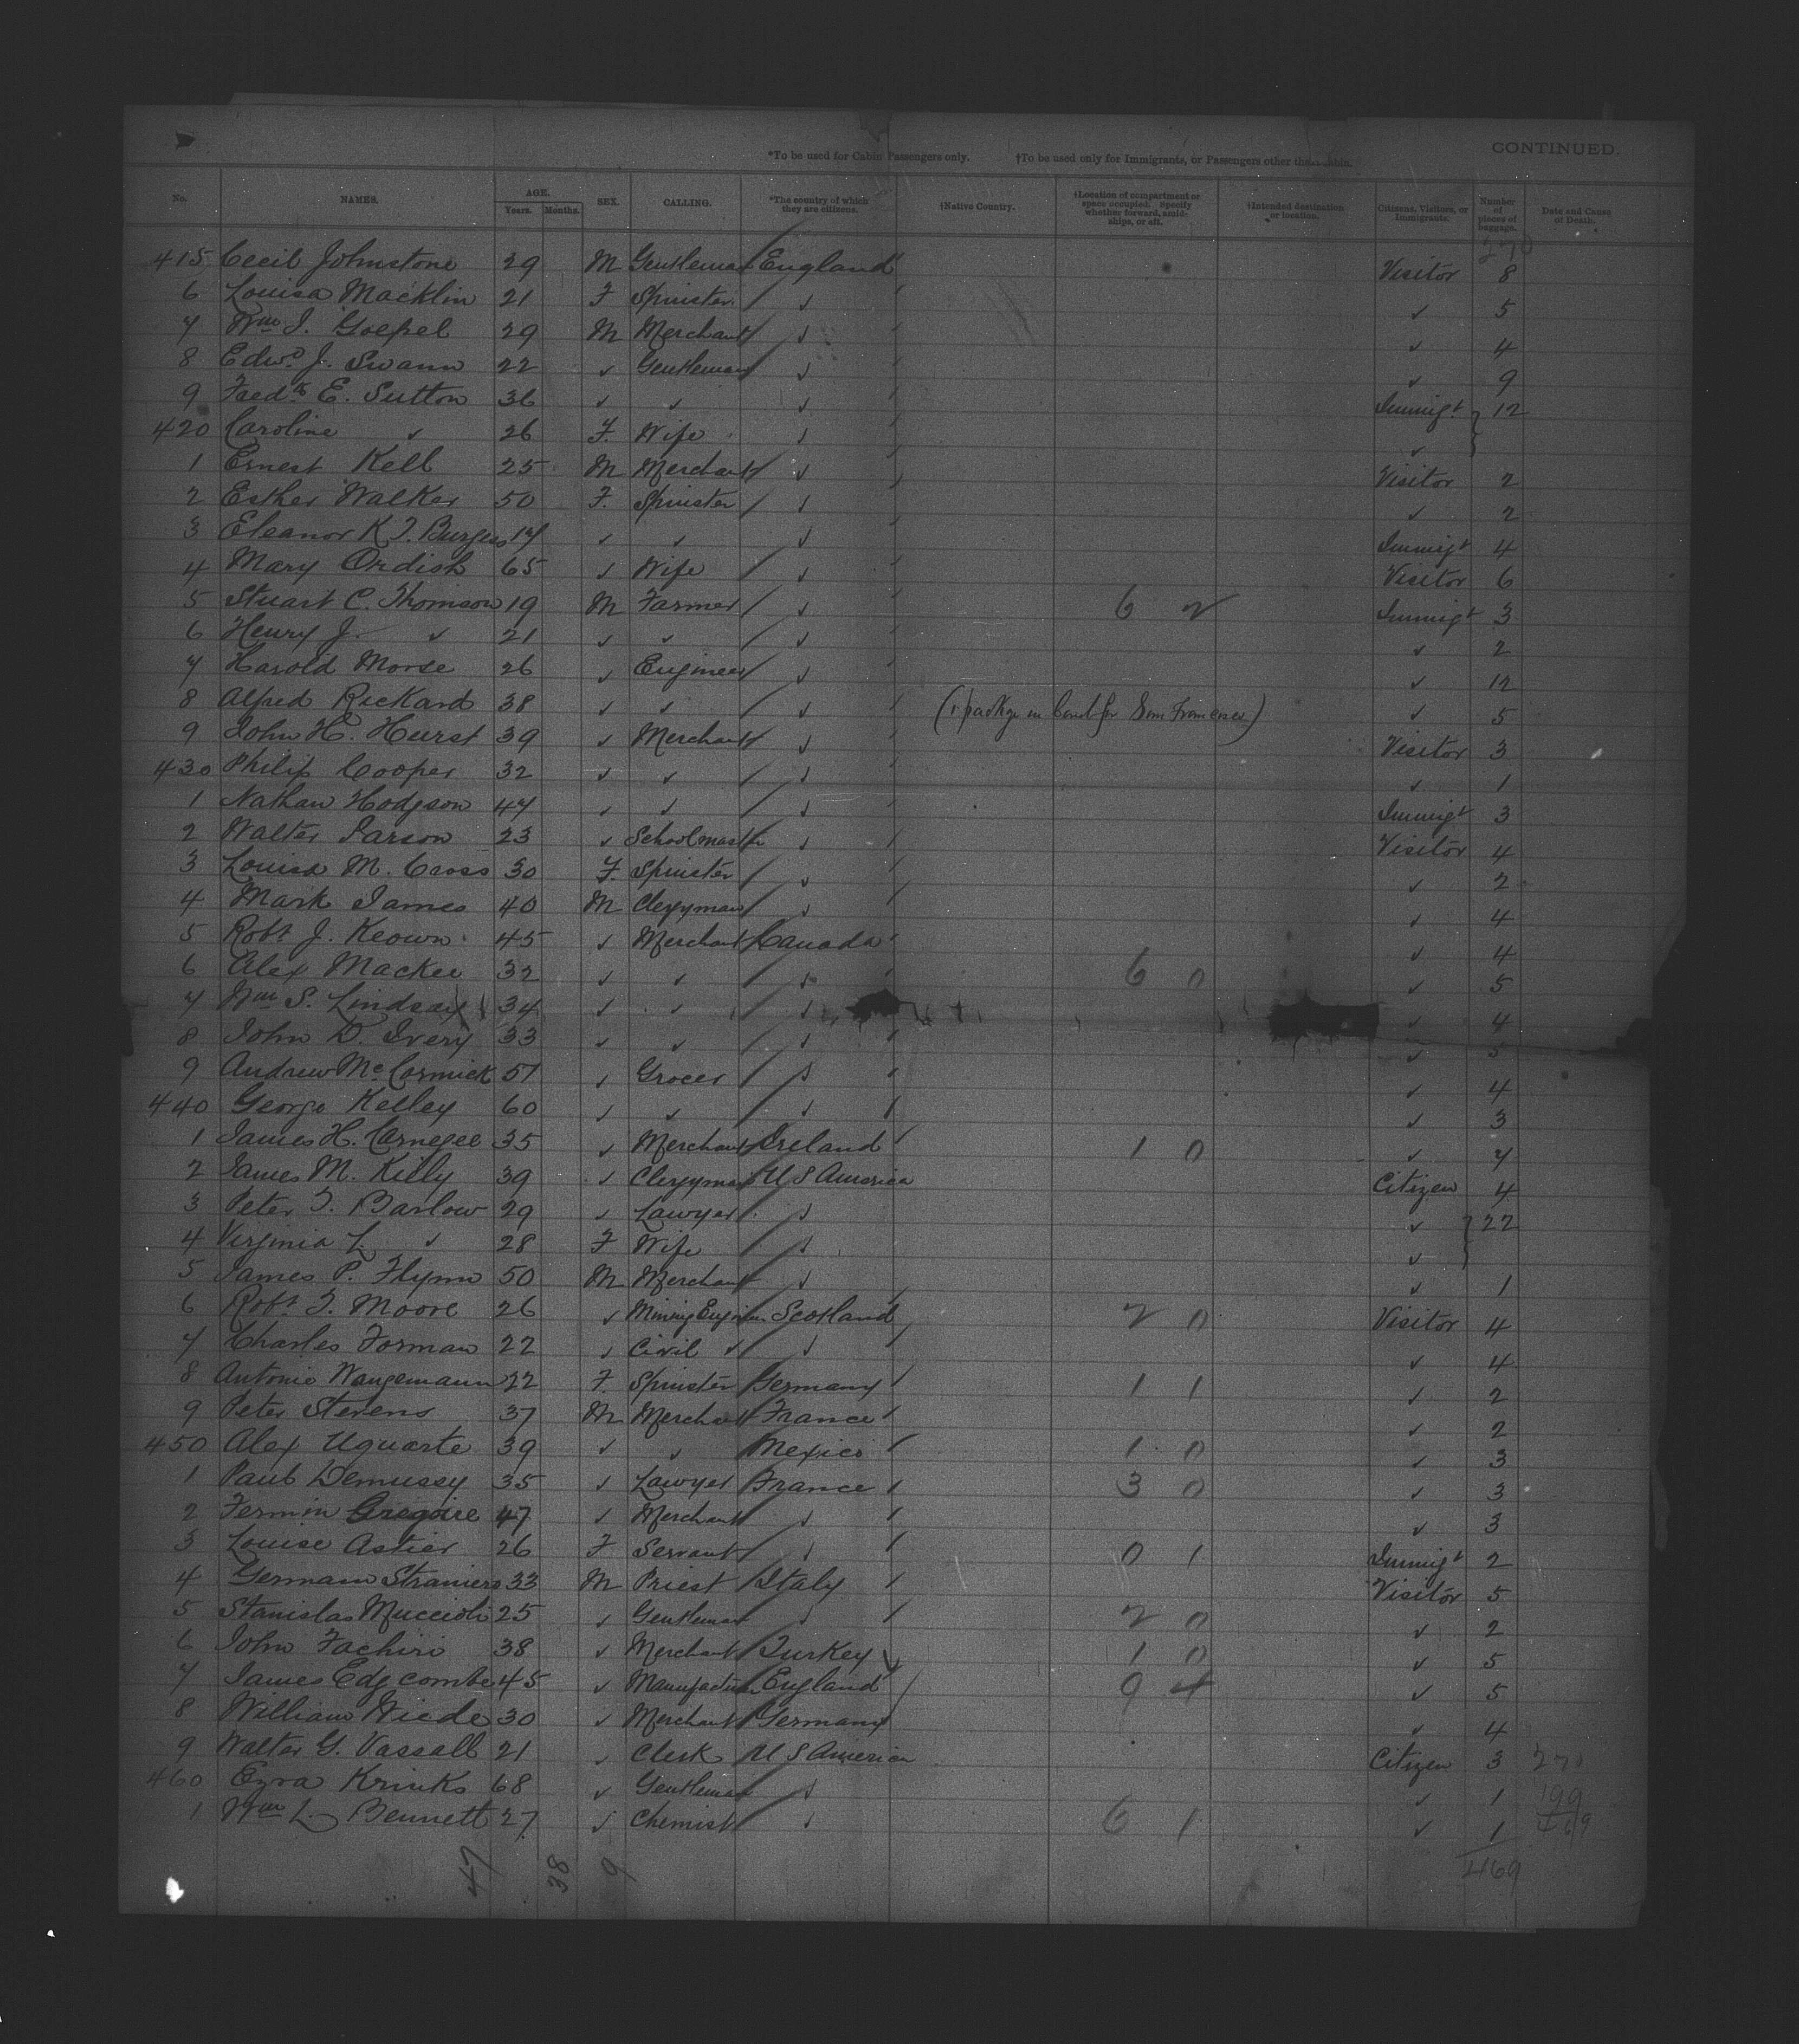 CONTINUED.
*To be used for Cabin Passengers only. †To be used only for Immigrants, or Passengers other than Cabin.
No. NAMES. AGE. Years. Months. SEX. CALLING. *The country of which they are citizens. †Native Country. †Location of compartment or space occupied. Specify whether forward, amidships, or aft. †Intended destination or location. Citizens, Visitors, or Immigrants. Number of pieces of baggage. Date and Cause of Death.
270
415 Cecil Johnstone 29 M Gentleman England Visitor 8
6 Louisa Macklin 21 F Spinster ✓ ✓ 5
7 Wm J. Goepel 29 M Merchant ✓ ✓ 4
8 Edwd J. Swann 22 ✓ Gentleman ✓ ✓ 9
9 Fredk E. Sutton 36 ✓ ✓ ✓ Immigt } 12
420 Caroline ✓ 26 F. Wife ✓ ✓
1 Ernest Kell 25 M Merchant ✓ Visitor 2
2 Esther Walker 50 F. Spinster ✓ ✓ 2
3 Eleanor K. T. Burgess 17 ✓ ✓ ✓ Immigt 4
4 Mary Ordish 65 ✓ Wife ✓ Visitor 6
5 Stuart C. Thomson 19 M Farmer ✓ 6 2 Immigt 3
6 Henry J. ✓ 21 ✓ ✓ ✓ ✓ 2
7 Harold Morse 26 ✓ Engineer ✓ ✓ 12
8 Alfred Rickard 38 ✓ ✓ ✓ (1 packge in bond for San Francisco) ✓ 5
9 John H. Hurst 39 ✓ Merchant ✓ Visitor 3
430 Philip Cooper 32 ✓ ✓ ✓ ✓ 1
1 Nathan Hodgson 47 ✓ ✓ ✓ Immigt 3
2 Walter Parson 23 ✓ Schoolmaster ✓ Visitor 4
3 Louisa M. Cross 30 F. Spinster ✓ ✓ 2
4 Mark James 40 M Clergyman ✓ ✓ 4
5 Robt J. Keown 45 ✓ Merchant Canada ✓ 4
6 Alex Mackee 32 ✓ ✓ ✓ 6 0 ✓ 5
7 Wm S. Lindsay 34 ✓ ✓ ✓ ✓ 4
8 John D. Ivery 33 ✓ ✓ ✓ ✓ 5
9 Andrew McCormick 51 ✓ Grocer ✓ ✓ 4
440 George Kelley 60 ✓ ✓ ✓ ✓ 3
1 James H. Carnegee 35 ✓ Merchant Ireland 1 0 ✓ 7
2 James M. Kielly 39 ✓ Clergyman U S America Citizen 4
3 Peter T. Barlow 29 ✓ Lawyer ✓ ✓ } 22
4 Virginia L. ✓ 28 F Wife ✓ ✓
5 James P. Flynn 50 M Merchant ✓ ✓ 1
6 Robt T. Moore 26 ✓ Mining Engineer Scotland 2 0 Visitor 4
7 Charles Forman 22 ✓ Civil ✓ ✓ ✓ 4
8 Antonie Wangemann 22 F. Spinster Germany 1 1 ✓ 2
9 Peter Stevens 37 M Merchant France ✓ 2
450 Alex Uguarte 39 ✓ ✓ Mexico 1 0 ✓ 3
1 Paul Demussy 35 ✓ Lawyer France 3 0 ✓ 3
2 Fermin Gregoire 47 ✓ Merchant ✓ ✓ 3
3 Louise Astier 26 F Servant ✓ 0 1 Immigt 2
4 Germain Straniero 33 M Priest Italy Visitor 5
5 Stanislas Muccioli 25 ✓ Gentleman ✓ 2 0 ✓ 2
6 John Fachiri 38 ✓ Merchant Turkey 1 0 ✓ 5
7 James Edgcombe 45 ✓ Manufacturer England 9 4 ✓ 5
8 William Wiede 30 ✓ Merchant Germany ✓ 4
9 Walter G. Vassall 21 ✓ Clerk U S America Citizen 3 270
460 Ezra Krinks 68 ✓ Gentleman ✓ ✓ 1 199
1 Wm L. Bennett 27 ✓ Chemist ✓ 6 1 ✓ 1 469
47 38 9 469